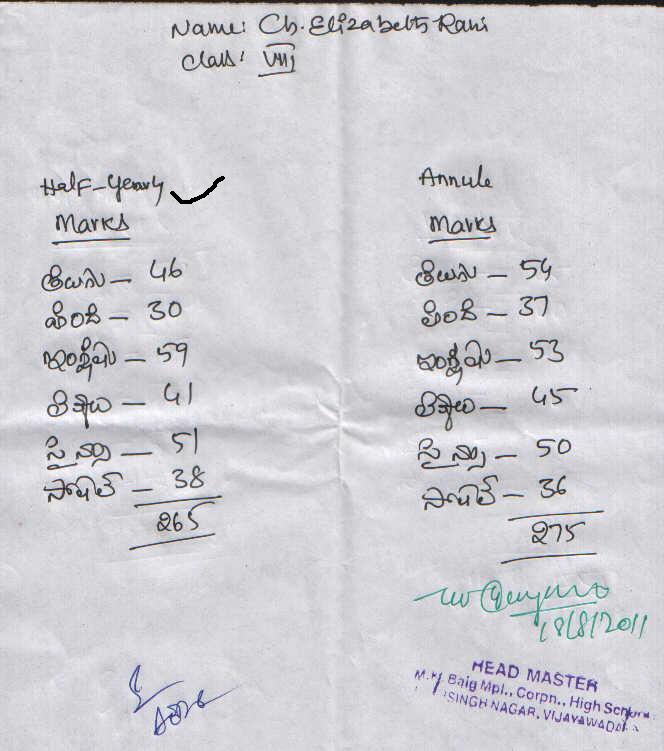 Name: Ch. Elizabeth Rani
Class: VIII
Half-Yearly
Marks
తెలుగు – 46
హింది – 30
ఇంగ్లీషు – 59
లెక్కలు – 41
సైన్సు – 51
సోషల్ – 38
265
Annule
Marks
తెలుగు – 54
హింది – 37
ఇంగ్లీషు – 53
లెక్కలు – 45
సైన్సు – 50
సోషల్ – 36
275
18/8/2011
HEAD MASTER
Baig Mpl., Corpn., High School
SINGH NAGAR, VIJAYAWADA